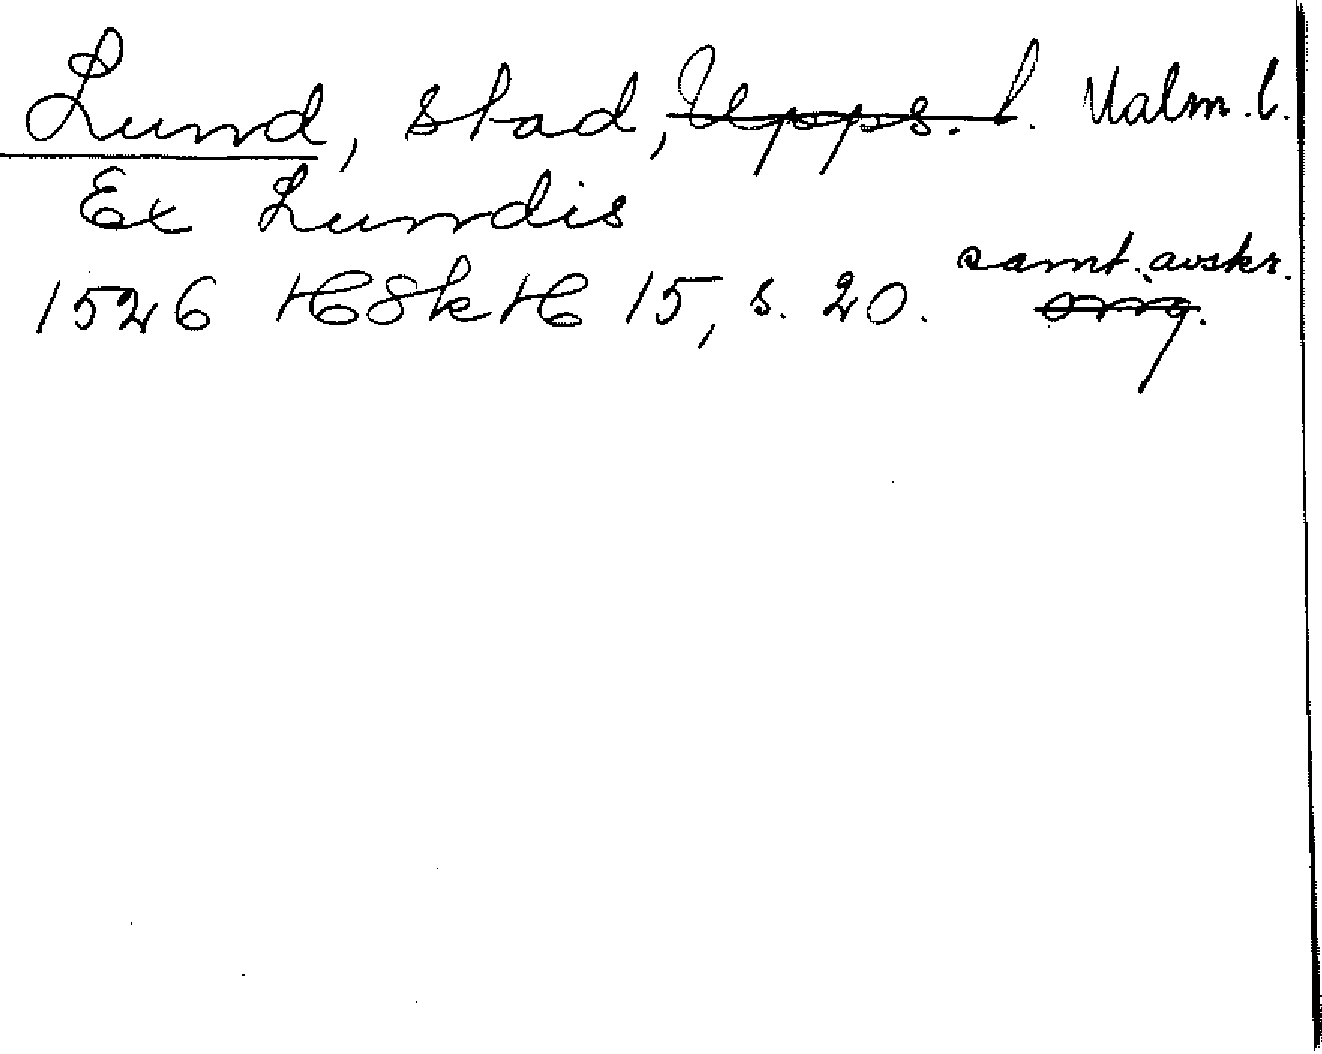 Lund, stad, Upps. l. Malm. l.
Ex Lundis
samt. avskr.
1526 HSkH 15, s. 20. orig.